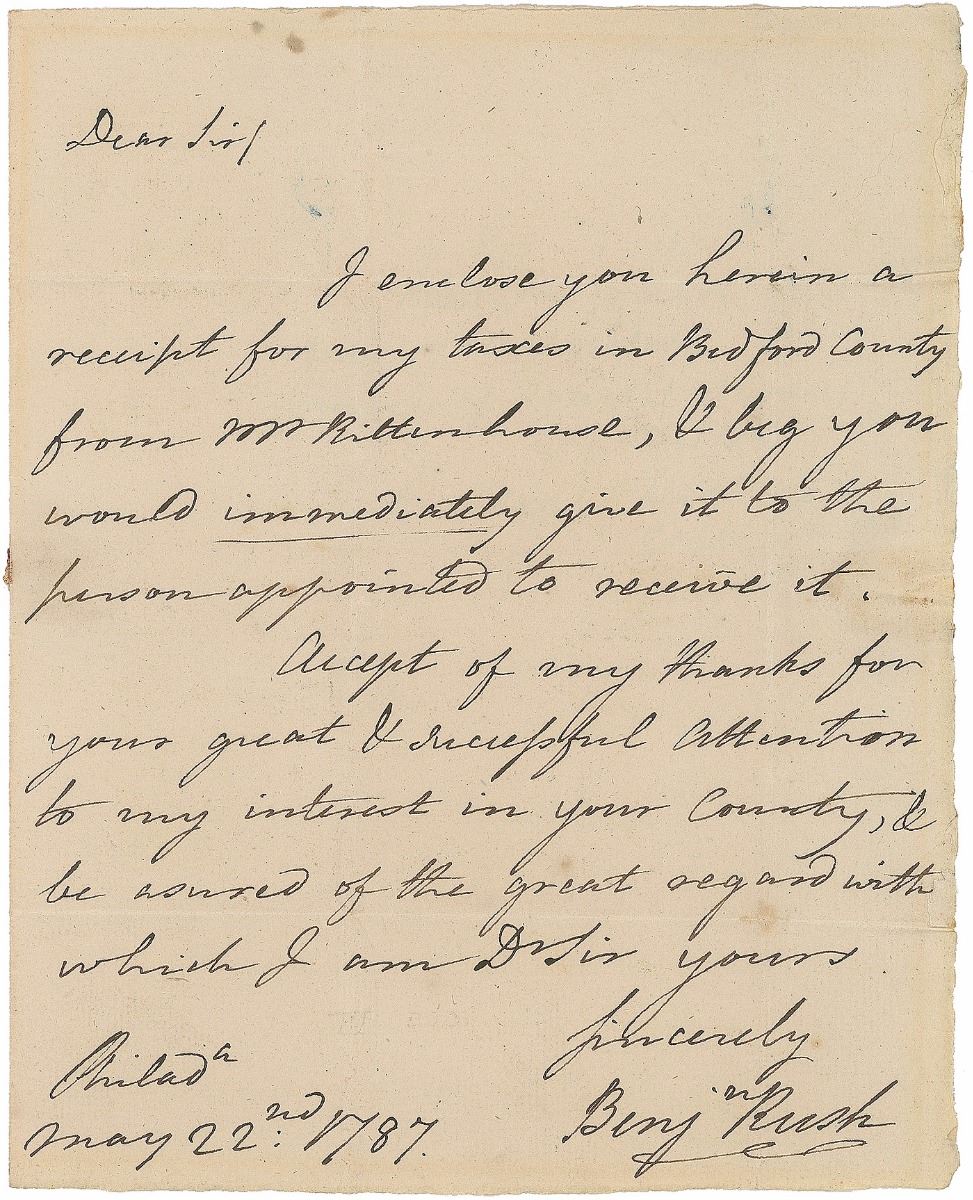 Dear Sir/
I enclose you herein a
receipt for my taxes in Bedford County
from Mr Rittenhouse, & beg you
would immediately give it to the
person appointed to receive it.
Accept of my thanks for
your great & successful Attention
to my interest in your County, &
be asured of the great regard with
which I am Dr Sir yours
sincerely
Philada
Benjn Rush
May 22nd: 1787.